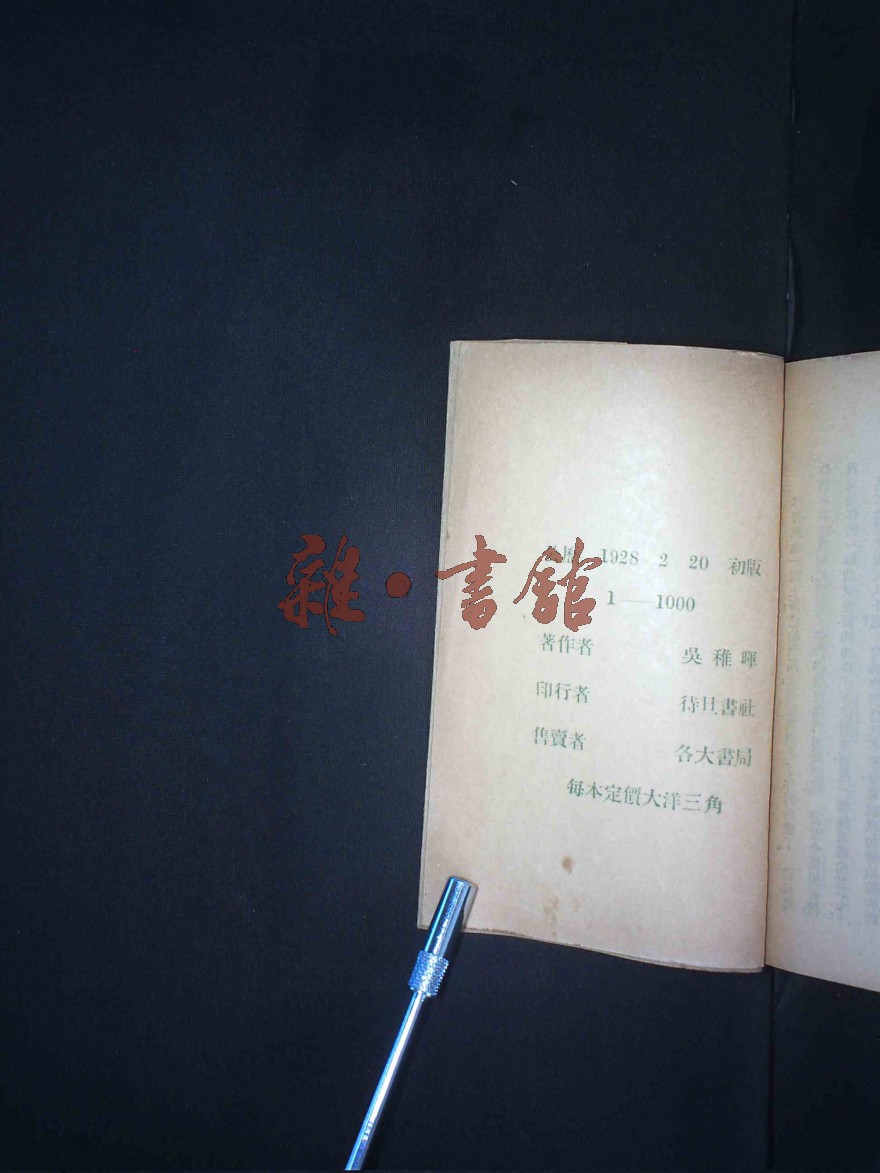 雜·書館
1928 2 20 初版
1——1000
著作者 吳稚暉
印行者 待旦書社
售賣者 各大書局
每本定價大洋三角